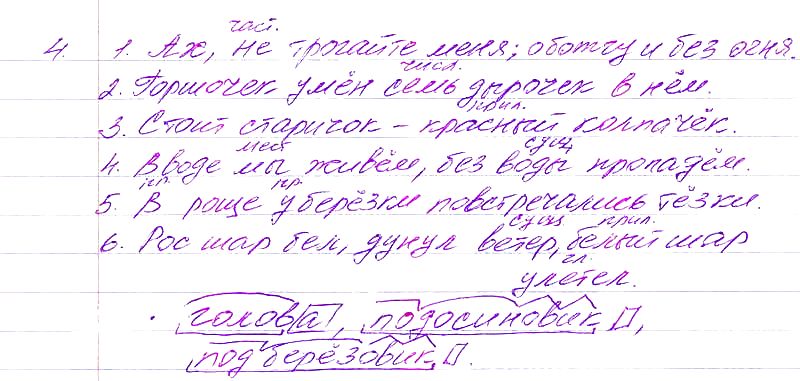 част.
4. 1. Ах, не трогайте меня; обожгу и без огня.
числ.
2. Горшочек умён семь дырочек в нём.
прил.
3. Стоит старичок – красный колпачёк.
мест сущ
4. В воде мы живём, без воды пропадём.
пр. пр.
5. В роще у берёзки повстречались тёзки.
сущ прил.
6. Рос шар бел, дунул ветер, белый шар
гл.
улетел.
· голова, подосиновик,
подберёзовик.